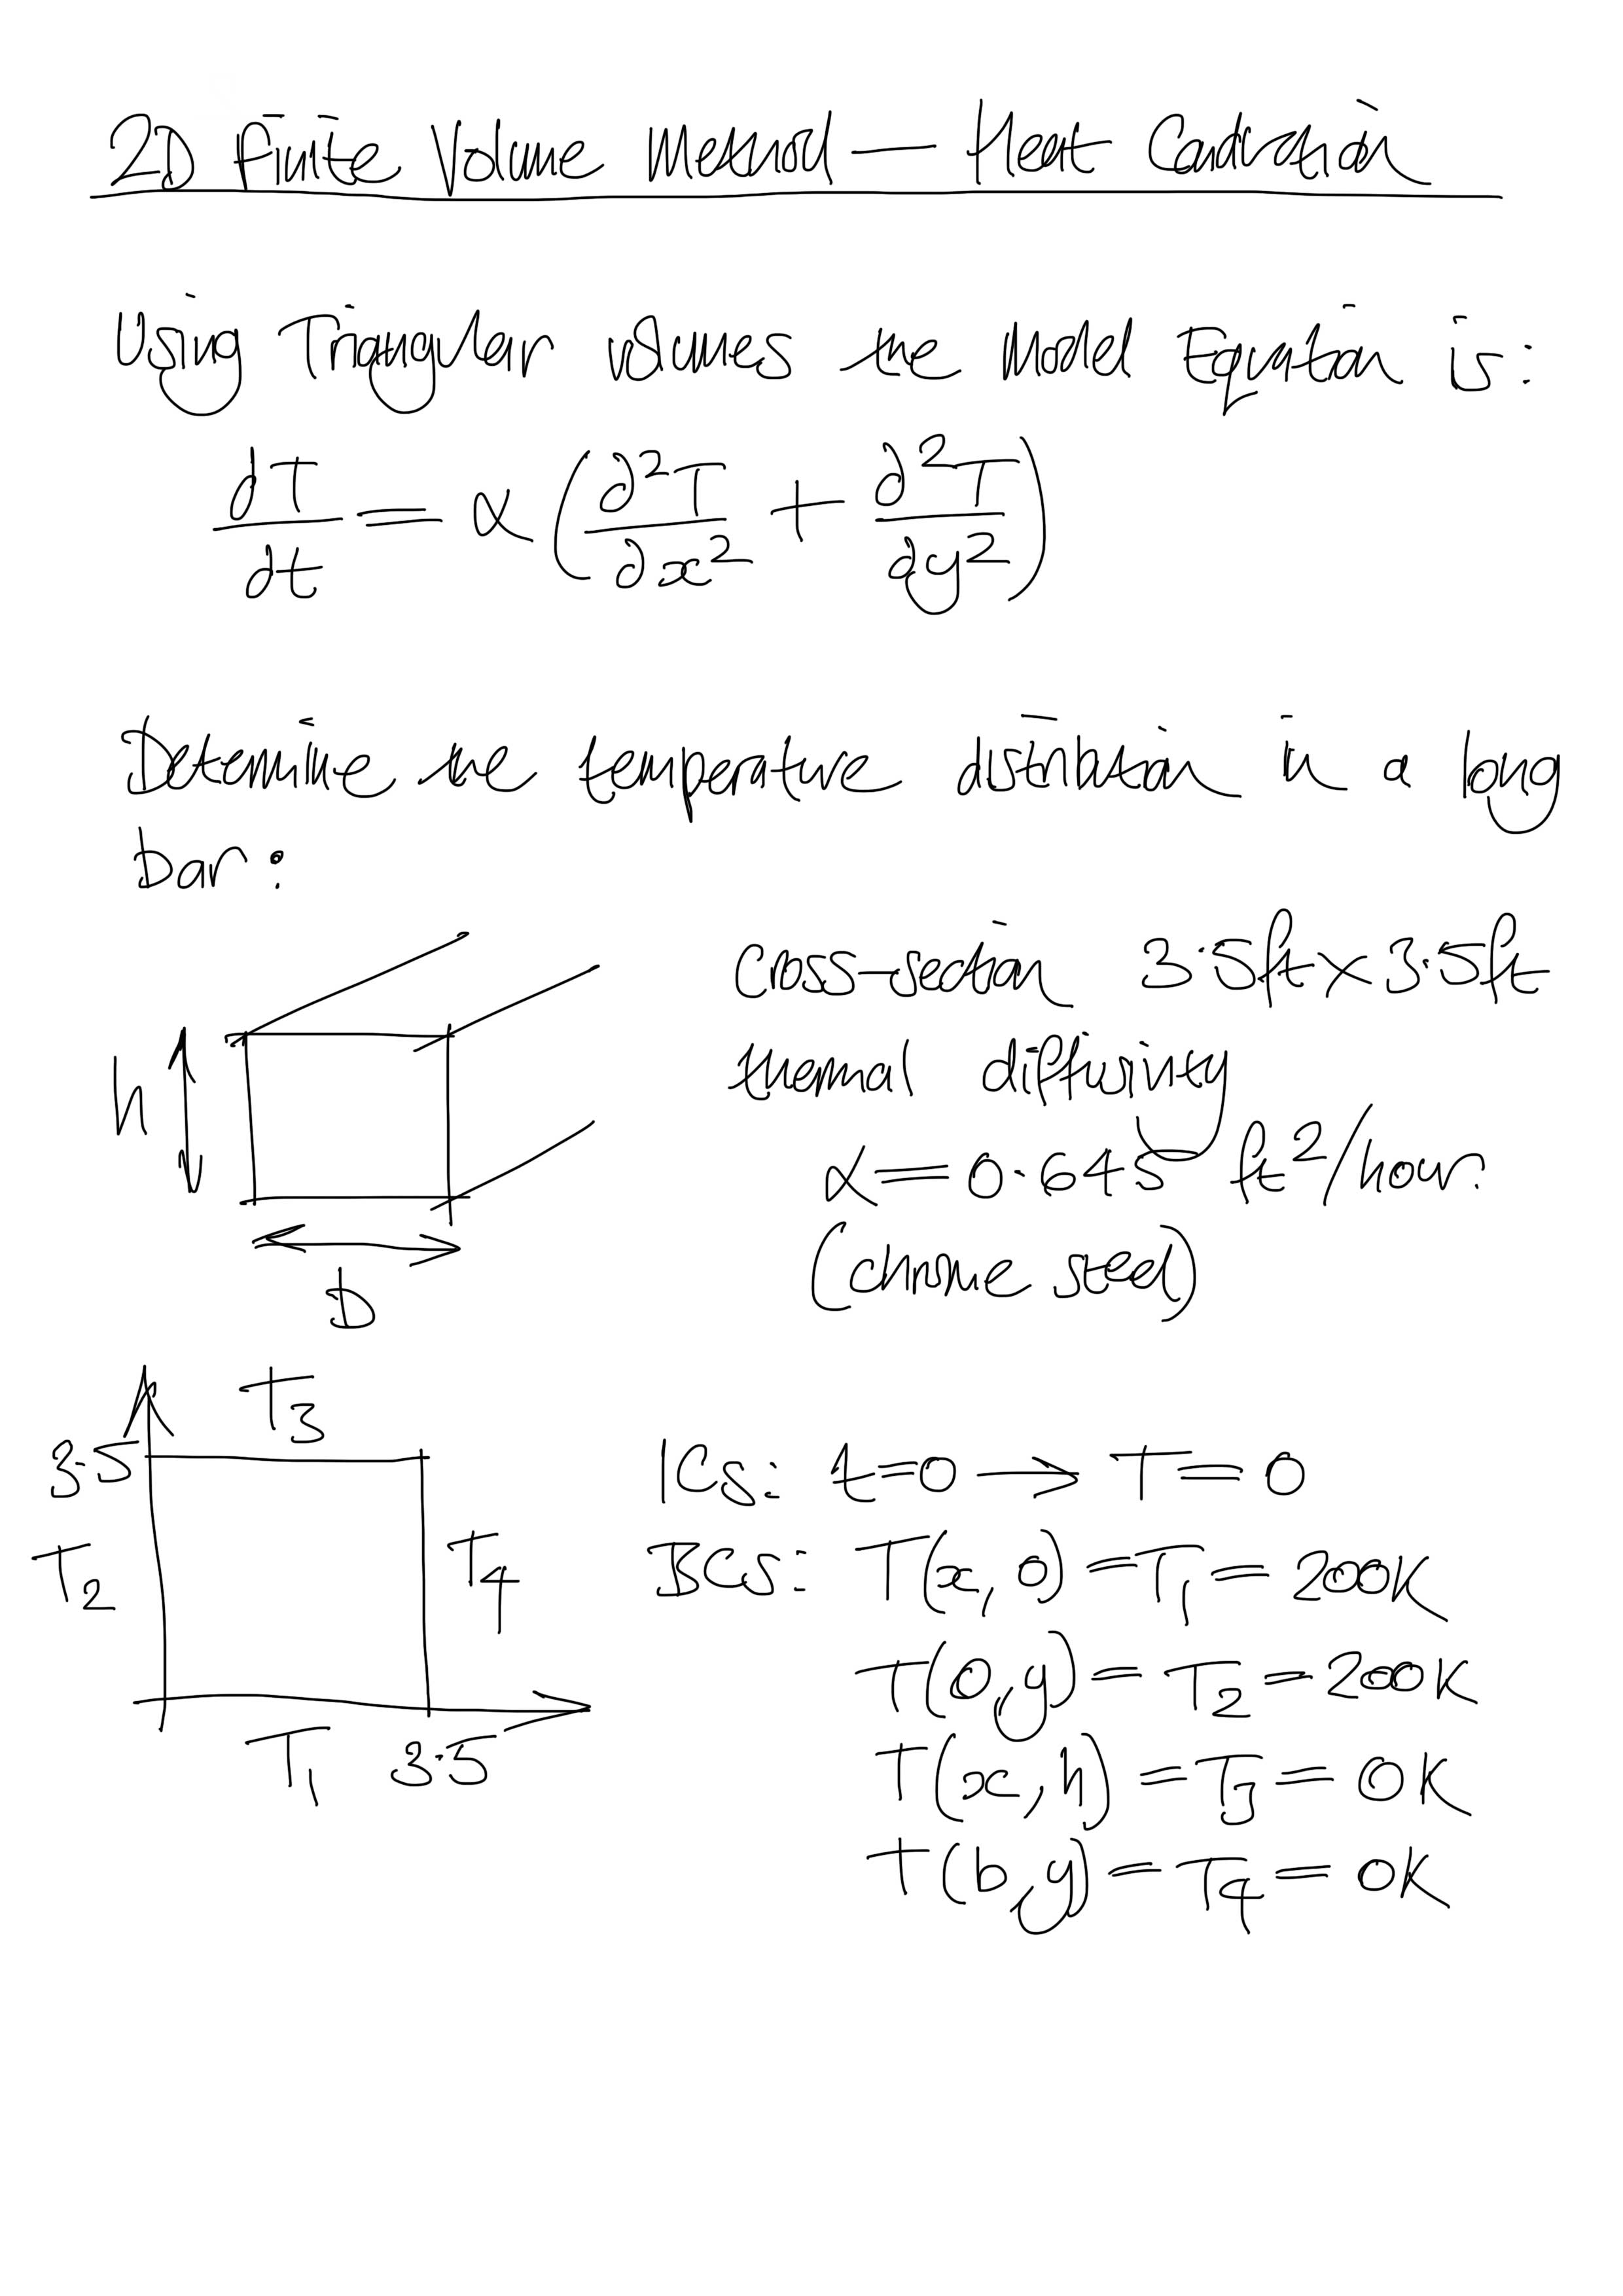 2D Finite Volume Method — Heat Conduction
Using Triangular volumes the Model Equation is:
dT/dt = α (∂²T/∂x² + ∂²T/∂y²)
Determine the temperature distribution in a long
bar:
Cross-section 3.5ft x 3.5ft
thermal diffusivity
α = 0.645 ft²/hour.
(chrome steel)
h
D
T3
3.5
T2
T4
T1 3.5
ICs: t=0 → T=0
BCs: T(x,0) = T1 = 200K
T(0,y) = T2 = 200K
T(x,h) = T3 = 0K
T(b,y) = T4 = 0K